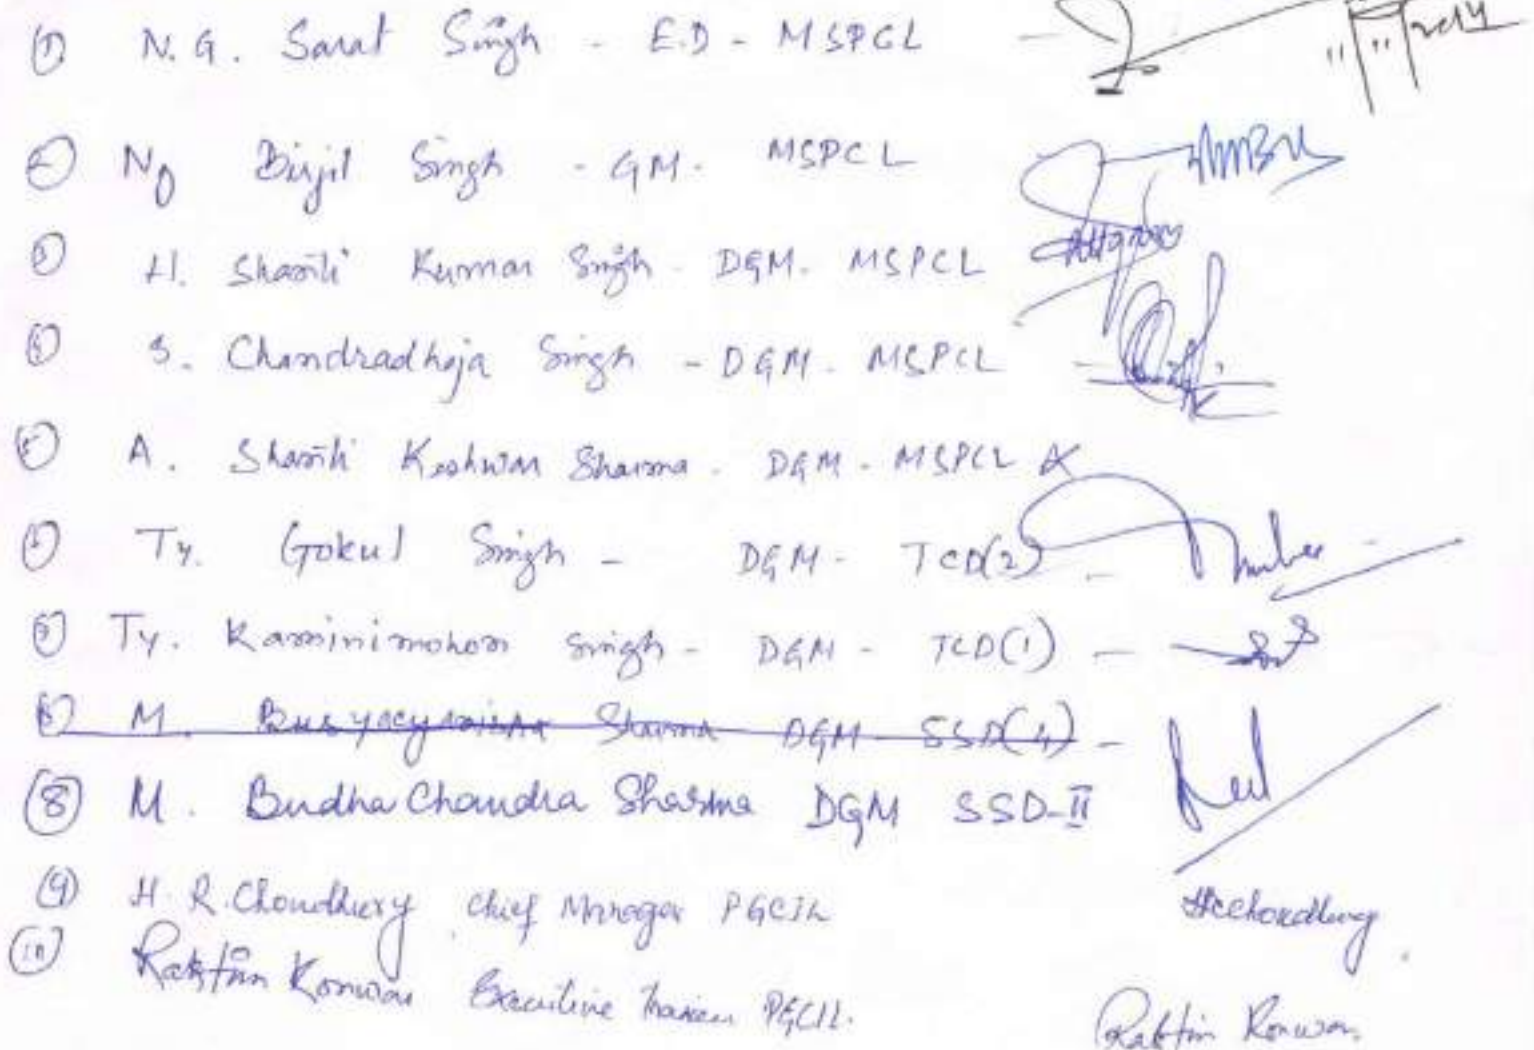 ① N.G. Sarat Singh - E.D - MSPCL -
② Ng Birjit Singh - GM. MSPCL
③ H. Shanti Kumar Singh - DGM. MSPCL
④ S. Chandradhaja Singh - DGM. MSPCL -
⑤ A. Shanti Keshwar Sharma - DGM - MSPCL
⑥ Ty. Gokul Singh - DGM - TCD(2) -
⑦ Ty. Kaminimohon Singh - DGM - TCD(1) -
M. Sharma DGM SSD(4) -
⑧ M. Budha Chandra Sharma DGM SSD-II
⑨ H.R. Choudhury Chief Manager PGCIL Hrchoudhury
⑩ Raktim Konwar Executive Trainee PGCIL. Raktim Konwar.